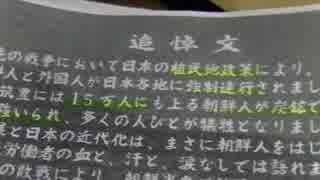 追悼文
の戦争において日本の植民地政策により、
人と外国人が日本各地に強制連行されまし
筑豊には15万人にも上る朝鮮人が炭鉱で
強いられ、多くの人びとが犠牲となりまし
と日本の近代化は、まさに朝鮮人をはじ
労働者の血と、汗と、涙なしでは語れま
の敗戦により、